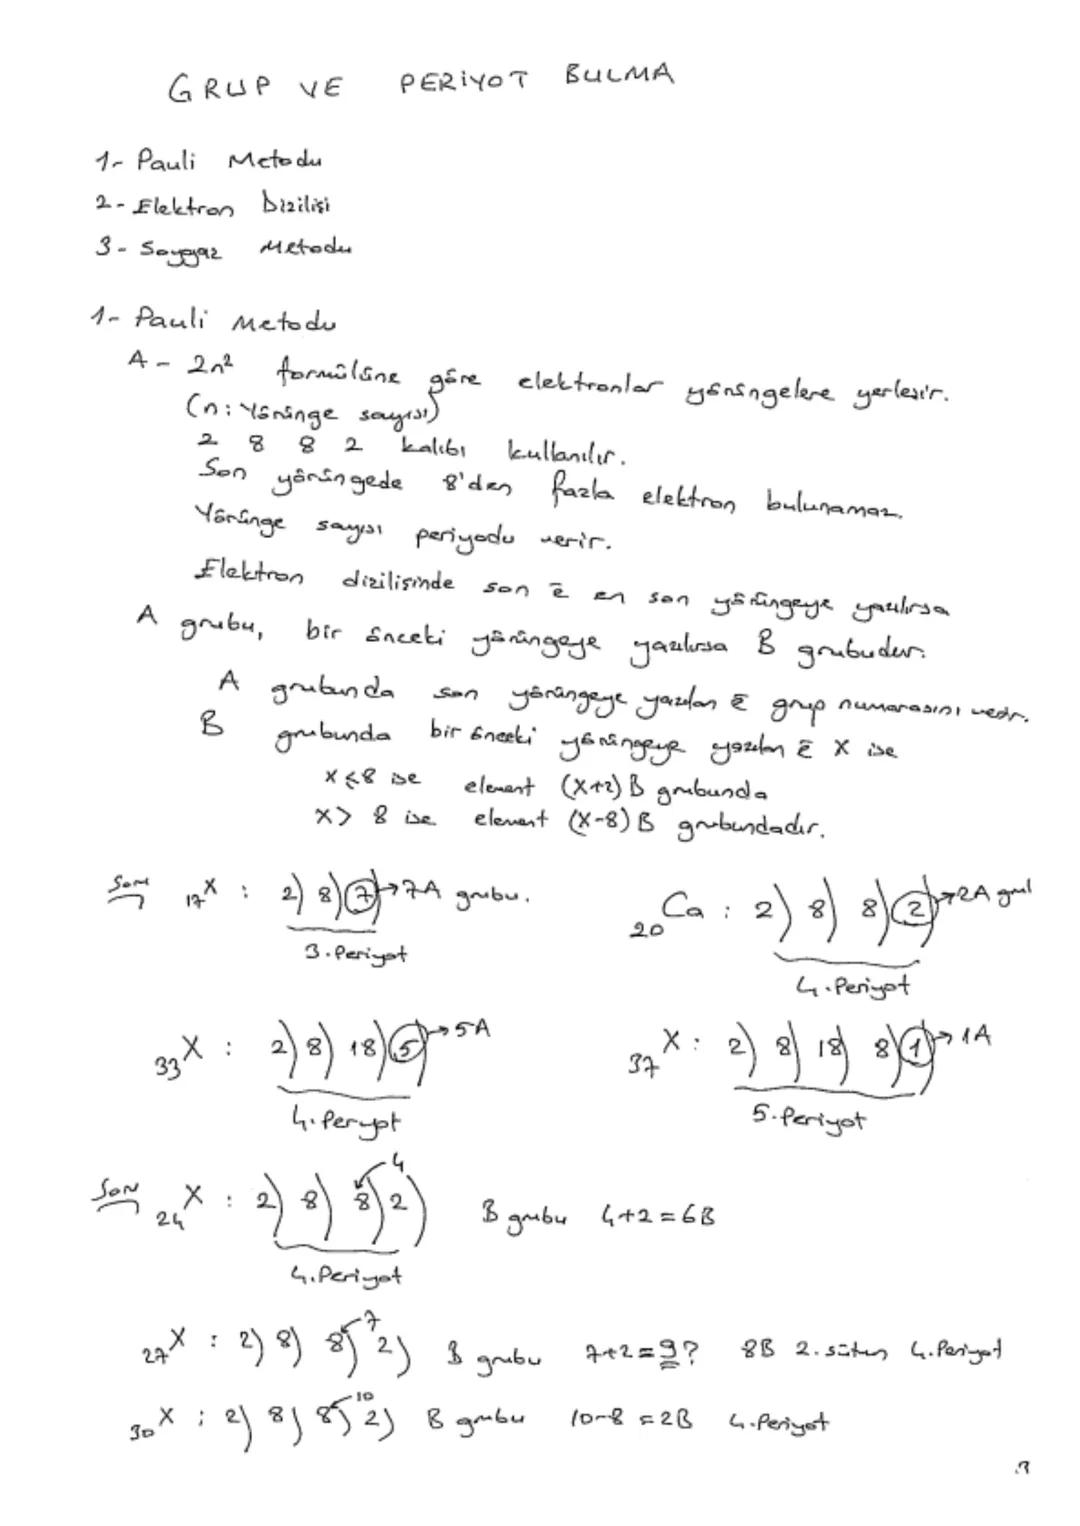 GRUP VE PERİYOT BULMA
1- Pauli Metodu
2- Elektron Dizilişi
3- Soygaz Metodu
1- Pauli Metodu
A - 2n² formülüne göre elektronlar yörüngelere yerleşir.
(n: Yörünge sayısı)
2 8 8 2 kalıbı kullanılır.
Son yörüngede 8'den fazla elektron bulunamaz.
Yörünge sayısı periyodu verir.
Elektron dizilişinde son ē en son yörüngeye yazılırsa
A grubu, bir önceki yörüngeye yazılırsa B grubudur.
A grubunda son yörüngeye yazılan ē grup numarasını verir.
B grubunda bir önceki yörüngeye yazılan ē X ise
x ≤ 8 ise element (x+2) B grubunda
x > 8 ise element (x-8) B grubundadır.
Soru 17X : 2) 8) 7) → 7A grubu.
3. Periyot
20Ca : 2) 8) 8) 2) → 2A
4. Periyot
33X : 2) 8) 18) 5) → 5A
4. Peryot
37X : 2) 8) 18) 8) 1) → 1A
5. Periyot
4
24X : 2) 8) 8) 2) B grubu 4+2=6B
4. Periyot
7
27X : 2) 8) 8) 2) B grubu 7+2=9? 8B 2. sütun 4. Periyot
10
30X : 2) 8) 8) 2) B grubu 10-8=2B 4. Periyot